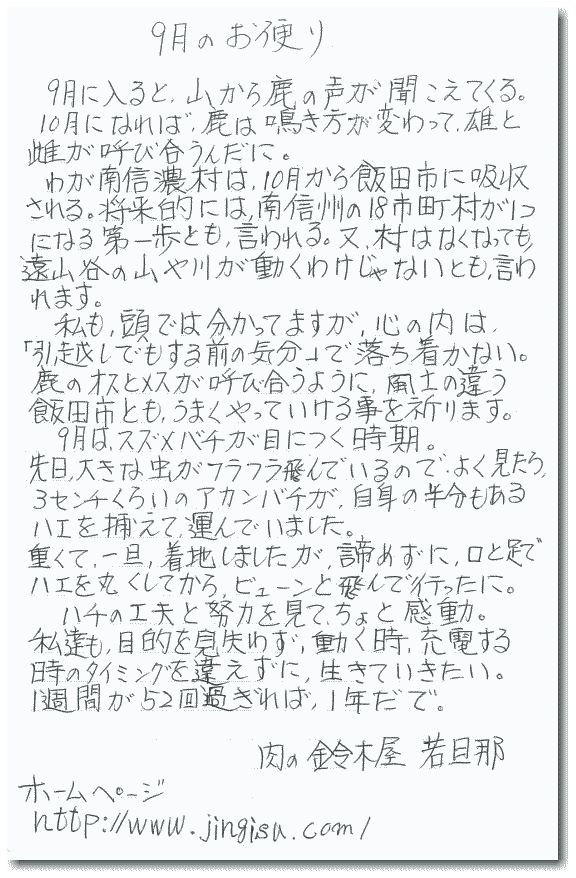 9月のお便り
9月に入ると、山から鹿の声が聞こえてくる。
10月になれば、鹿は鳴き方が変わって、雄と
雌が呼び合うんだに。
わが南信濃村は、10月から飯田市に吸収
される。将来的には、南信州の18市町村が1つ
になる第一歩とも、言われる。又、村はなくなっても、
遠山谷の山や川が動くわけじゃないとも、言わ
れます。
私も、頭では分かってますが、心の内は、
「引越しでもする前の気分」で落ち着かない。
鹿のオスとメスが呼び合うように、風土の違う
飯田市とも、うまくやっていける事を祈ります。
9月は、スズメバチが目につく時期。
先日、大きな虫がフラフラ飛んでいるので、よく見たら、
3センチくらいのアカンバチが、自身の半分もある
ハエを捕えて、運んでいました。
重くて、一旦、着地しましたが、諦めずに、口と足で
ハエを丸くしてから、ビューンと飛んで行ったに。
ハチの工夫と努力を見て、ちょと感動。
私達も、目的を見失わず、動く時、充電する
時のタイミングを違えずに、生きていきたい。
1週間が52回過ぎれば、1年だで。
肉の鈴木屋 若旦那
ホームページ
http://www.jingisu.com/